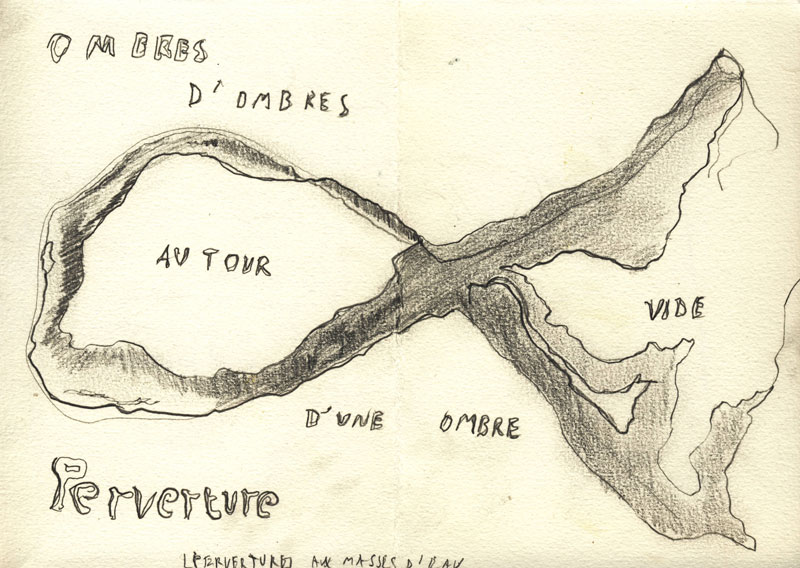 OMBRES
D'OMBRES
AUTOUR
VIDE
D'UNE OMBRE
Perverture
AUX MASSES D'EAU